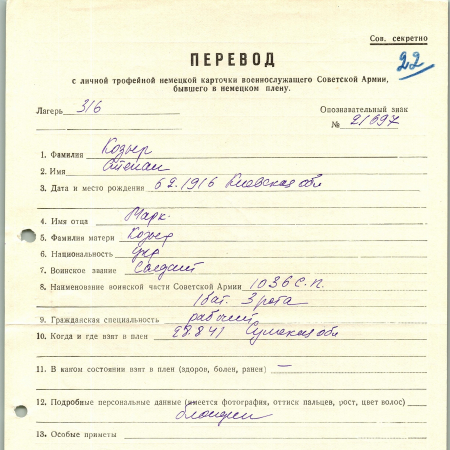 Сов. секретно
22
ПЕРЕВОД
с личной трофейной немецкой карточки военнослужащего Советской Армии,
бывшего в немецком плену.
Лагерь 316
Опознавательный знак
№ 21697
1. Фамилия Козыр
2. Имя Степан
3. Дата и место рождения 6 2.1916 Киевская обл
4. Имя отца Марк.
5. Фамилия матери
6. Национальность укр
7. Воинское звание Солдат
8. Наименование воинской части Советской Армии 1036 с.п.
1 бат. 3 рота
9. Гражданская специальность рабочий
10. Когда и где взят в плен 28.8 41 Сумская обл
11. В каком состоянии взят в плен (здоров, болен, ранен) —
12. Подробные персональные данные (имеется фотография, оттиск пальцев, рост, цвет волос)
блондин
13. Особые приметы